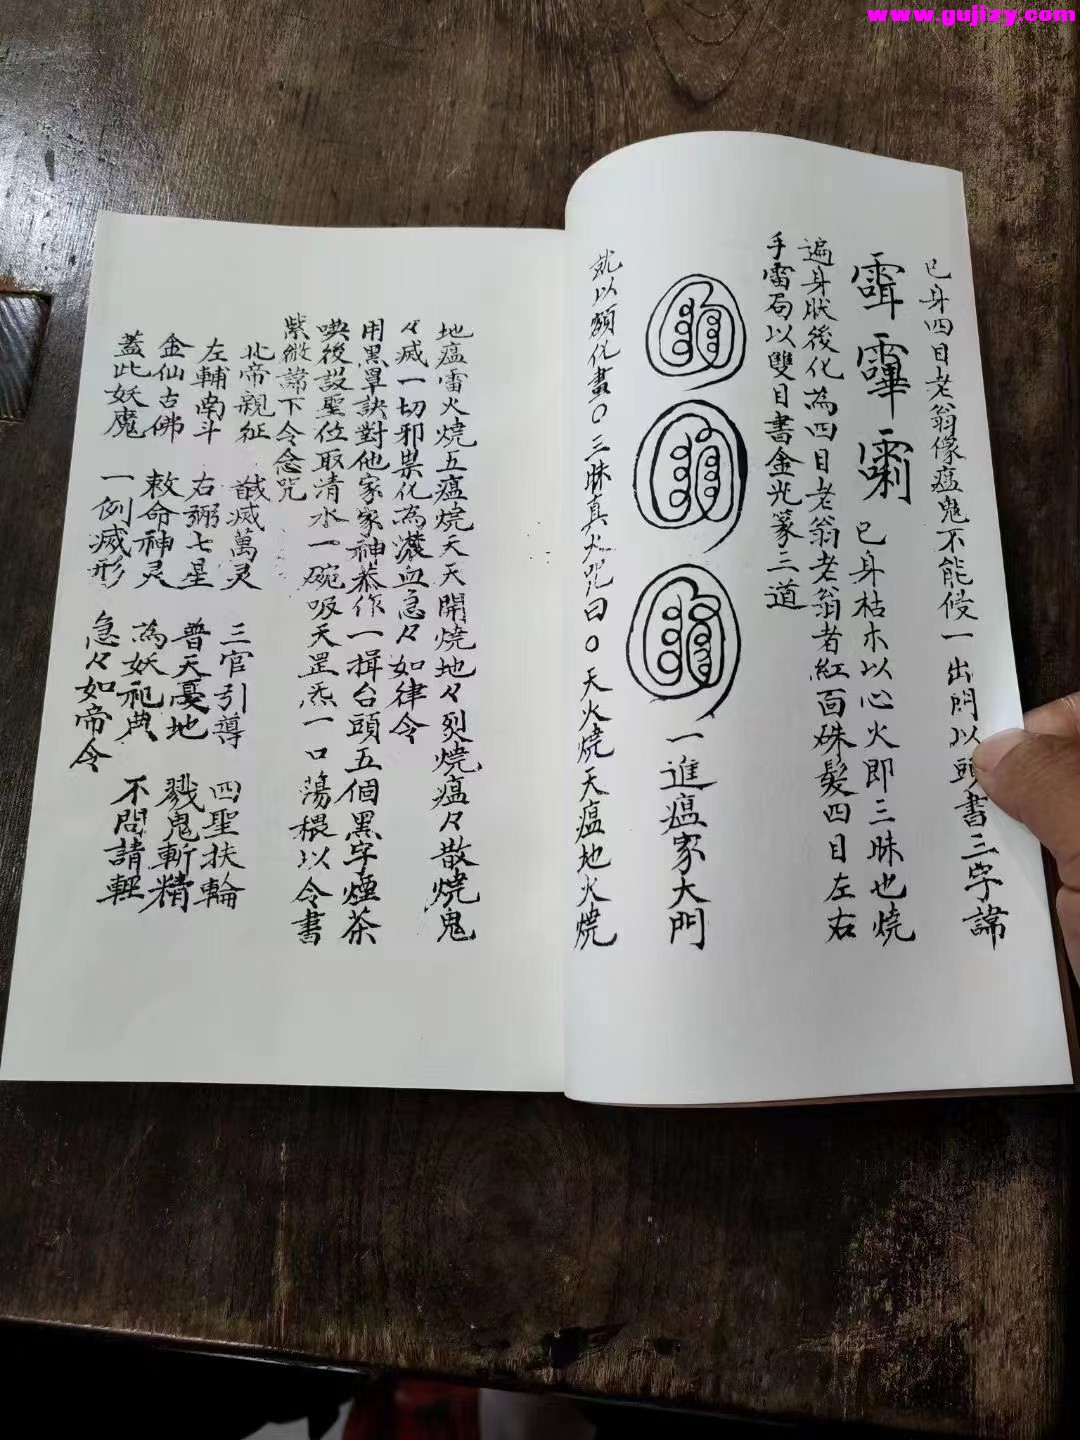 www.gujizy.com
己身四目老翁像瘟鬼不能侵一出門以頭書三字諱
己身枯木以心火即三昧也燒
遍身肰後化為四目老翁老翁者紅面硃髮四目左右
手雷局以雙目書金光篆三道
一進瘟家大門
就以額化書〇三昧真火咒曰〇天火燒天瘟地火燒
地瘟雷火燒五瘟燒天天開燒地々烈燒瘟々散燒鬼
々滅一切邪祟化為濃血急々如律令
用黑罩訣對他家家神恭作一揖台頭五個黑字煙茶
喚後設聖位取清水一碗吸天罡炁一口蕩穢以令書
紫微諱下令念咒
北帝親征 馘滅萬灵 三官引導 四聖扶輪
左輔南斗 右弼七星 普天憂地 戮鬼斬精
金仙古佛 敕命神灵 為妖祀典 不問請輕
蓋此妖魔 一例滅形 急々如帝令